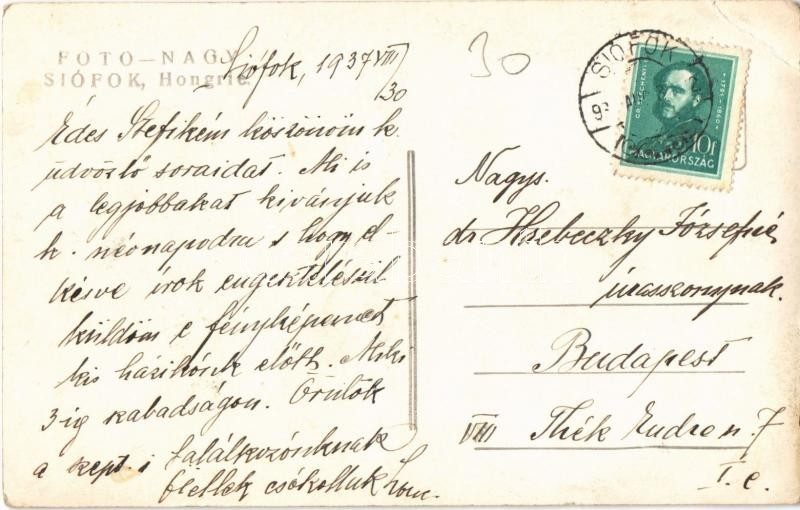 FOTO—NAGY
SIÓFOK, Hongrie
Siófok, 1937 VIII/30
Édes Stefikém köszönöm k.
üdvözlő soraidat. Mi is
a legjobbakat kivánjuk
k. névnapodra s hogy el-
késve írok engesztelésül
küldöm e fényképemet
kis házikónk előtt. Miki
3-ig szabadságon. Örülök
a szept. i találkozásunknak
ölellek csókollak
30
SIÓFOK
GR. SZÉCHENYI
1791–1860
10f
MAGYARORSZÁG
Nagys.
dr Hrebeczky Józsefné
úrasszonynak.
Budapest
VIII Thék Endre u. 7
I. e.